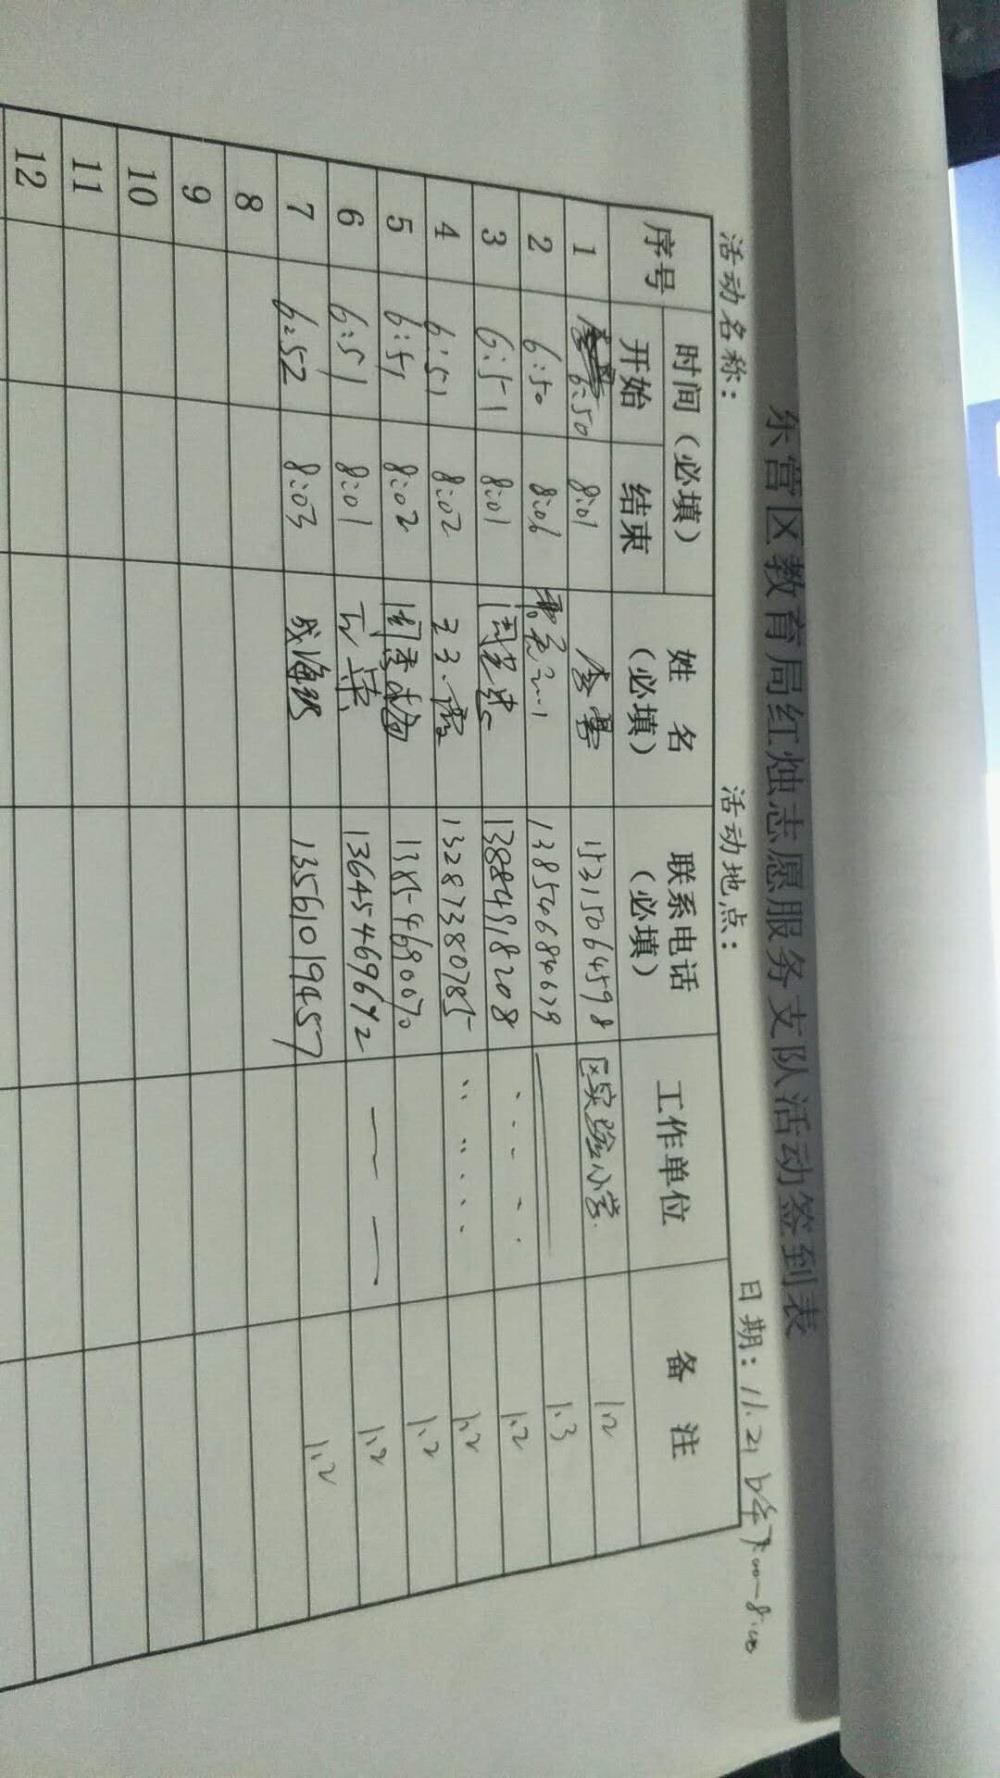 东营区教育局红烛志愿服务支队活动签到表
活动名称： 活动地点： 日期：11.21 7:00-8:00
序号 时间（必填） 姓 名（必填） 联系电话（必填） 工作单位 备 注
开始 结束
1 6:50 8:01 李 15315064598 区实验小学 1.2
2 6:50 8:06 13854684679 1.3
3 6:51 8:01 13884918208 1.2
4 6:51 8:02 13287380785 1.2
5 6:51 8:02 1.2
6 6:51 8:01 13645469642 1.2
7 6:52 8:03 成海 13561019457 1.2
8
9
10
11
12